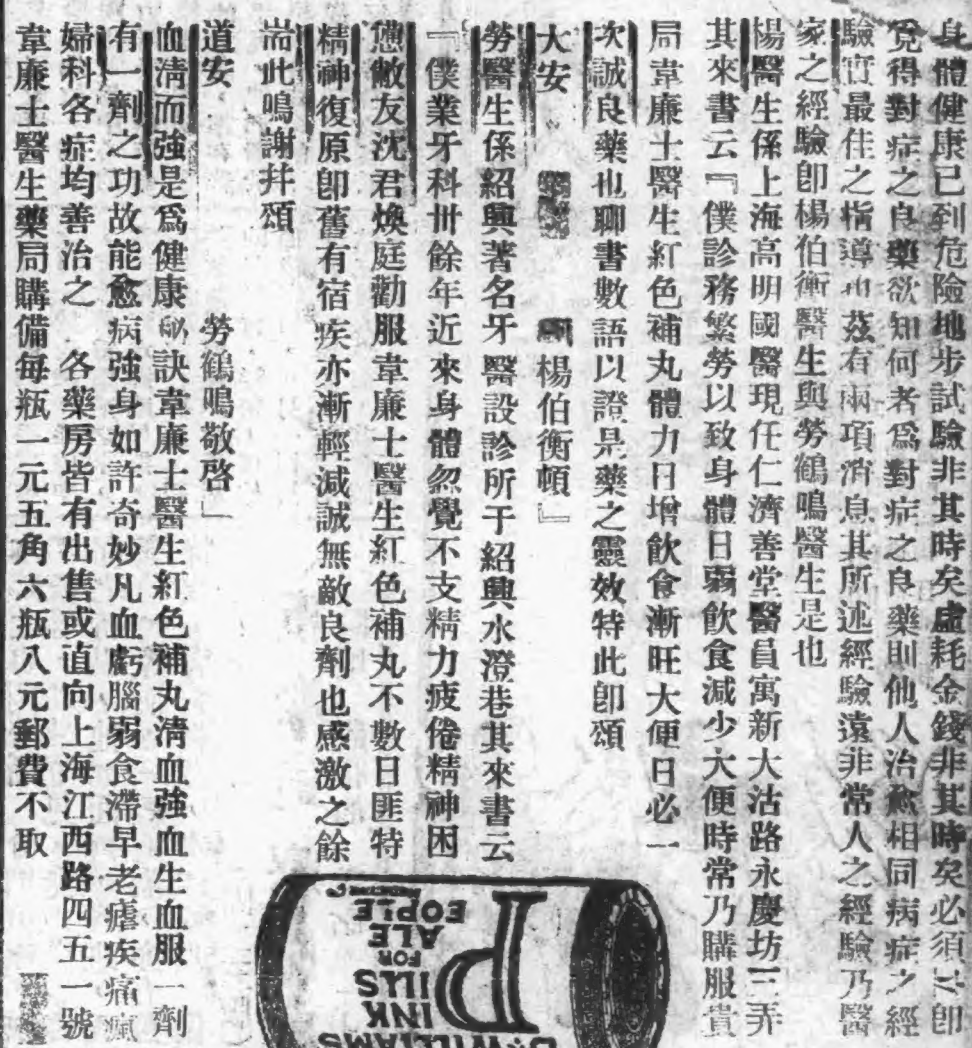 身體健康已到危險地步試驗非其時矣虛耗金錢非其時矣必須立卽
覓得對症之良藥欲知何者爲對症之良藥則他人治愈相同病症之經
驗實最佳之指導也茲有兩項消息其所述經驗遠非常人之經驗乃醫
家之經驗卽楊伯衡醫生與勞鶴鳴醫生是也
楊醫生係上海高明國醫現任仁濟善堂醫員寓新大沽路永慶坊三弄
其來書云『僕診務繁勞以致身體日弱飲食減少大便時常乃購服貴
局韋廉士醫生紅色補丸體力日增飲食漸旺大便日必一
次誠良藥也聊書數語以證是藥之靈效特此卽頌
大安 楊伯衡頓』
勞醫生係紹興著名牙醫設診所于紹興水澄巷其來書云
『僕業牙科卅餘年近來身體忽覺不支精力疲倦精神困
憊敝友沈君煥庭勸服韋廉士醫生紅色補丸不數日匪特
精神復原卽舊有宿疾亦漸輕減誠無敵良劑也感激之餘
耑此鳴謝幷頌
道安 勞鶴鳴敬啓」
血淸而強是爲健康祕訣韋廉士醫生紅色補丸淸血強血生血服一劑
有一劑之功故能愈病強身如許奇妙凡血虧腦弱食滯早老瘧疾痛瘋
婦科各症均善治之 各藥房皆有出售或直向上海江西路四五一號
韋廉士醫生藥局購備每瓶一元五角六瓶八元郵費不取
Dr. WILLIAMS
PINK
PILLS
FOR
PALE
PEOPLE